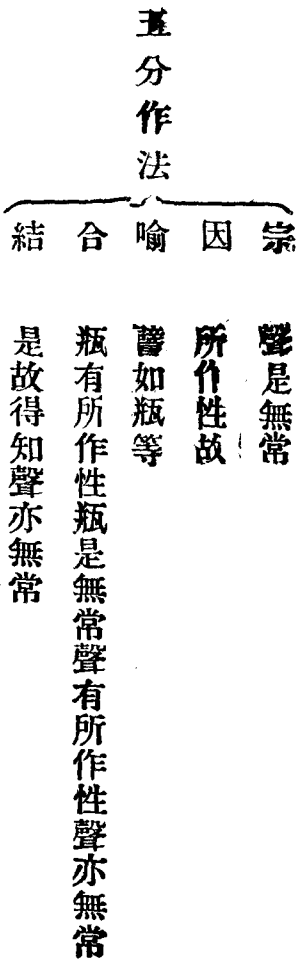 五分作法
宗
聲是無常
因
所作性故
喻
譬如瓶等
合
瓶有所作性瓶是無常聲有所作性聲亦無常
結
是故得知聲亦無常